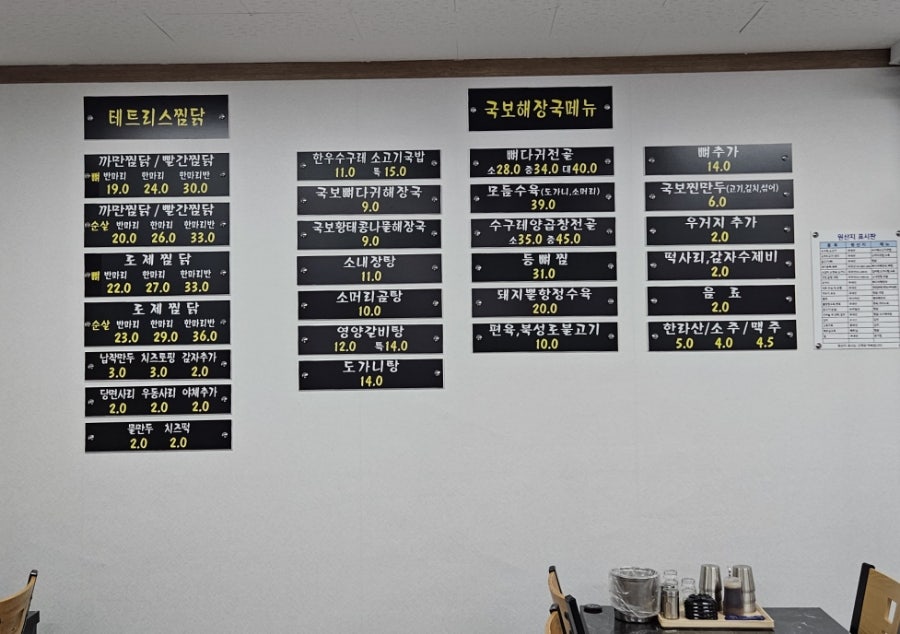 테트리스찜닭
까만찜닭/빨간찜닭
뼈 반마리 한마리 한마리반
19.0 24.0 30.0
까만찜닭/빨간찜닭
순살 반마리 한마리 한마리반
20.0 26.0 33.0
로제찜닭
뼈 반마리 한마리 한마리반
22.0 27.0 33.0
로제찜닭
순살 반마리 한마리 한마리반
23.0 29.0 36.0
납작만두 치즈토핑 감자추가
3.0 3.0 2.0
당면사리 우동사리 야채추가
2.0 2.0 2.0
물만두 치즈떡
2.0 2.0
한우수구레 소고기국밥
11.0 특15.0
국보뼈다귀해장국
9.0
국보황태콩나물해장국
9.0
소내장탕
11.0
소머리곰탕
10.0
영양갈비탕
12.0 특14.0
도가니탕
14.0
국보해장국메뉴
뼈다귀전골
소28.0 중34.0 대40.0
모듬수육(도가니,소머리)
39.0
수구레양곱창전골
소35.0 중45.0
등뼈찜
31.0
돼지뽈항정수육
20.0
편육,북성로불고기
10.0
뼈추가
14.0
국보찐만두(고기,김치,섞어)
6.0
우거지 추가
2.0
떡사리,감자수제비
2.0
음료
2.0
한라산/소주/맥주
5.0 4.0 4.5
원산지 표시판